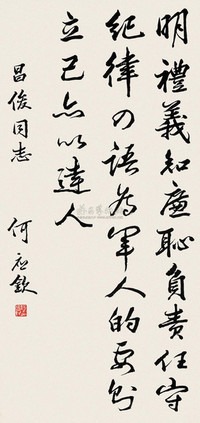 明禮義知廉恥負責任守
紀律の語為軍人的要則
立己亦以達人
昌俊同志
何應欽